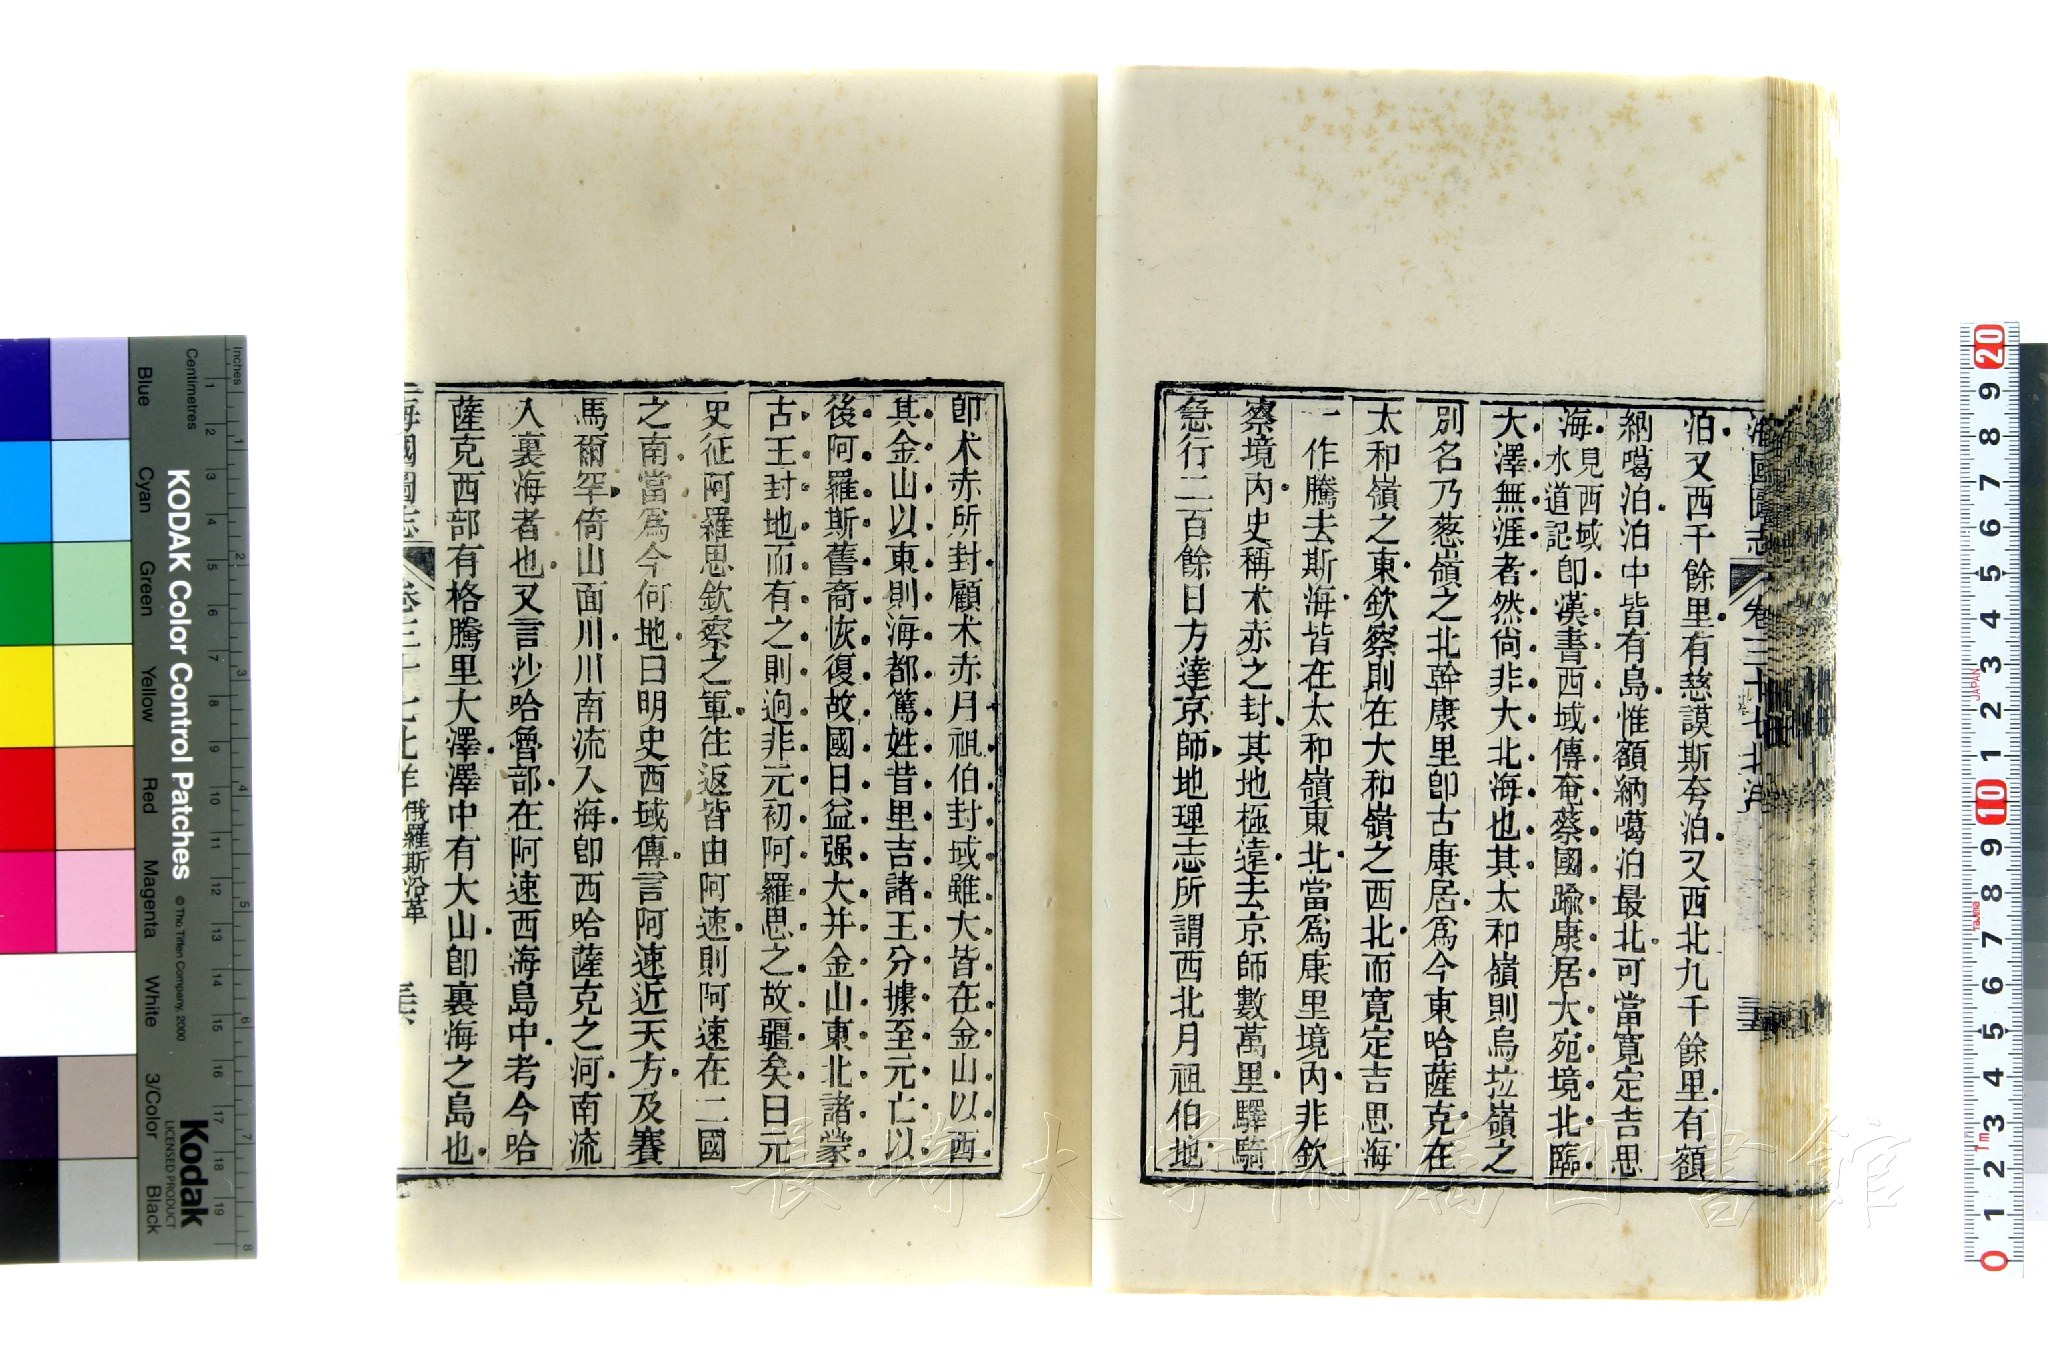 海國圖志 卷三十七 北洋
泊又西千餘里有慈謨斯夸泊又西北九千餘里有額
納噶泊泊中皆有島惟額納噶泊最北可當寬定吉思
海見西域水道記卽漢書西域傳奄蔡國踰康居大宛境北臨
大澤無涯者然尙非大北海也其太和嶺則烏拉嶺之
別名乃葱嶺之北幹康里卽古康居爲今東哈薩克在
太和嶺之東欽察則在大和嶺之西北而寬定吉思海
一作騰去斯海皆在太和嶺東北當爲康里境內非欽
察境內史稱朮赤之封其地極遠去京師數萬里驛騎
急行二百餘日方達京師地理志所謂西北月祖伯地
卽朮赤所封顧朮赤月祖伯封域雖大皆在金山以西
其金山以東則海都篤姓昔里吉諸王分據至元亡以
後阿羅斯舊裔恢復故國日益强大并金山東北諸蒙
古王封地而有之則逈非元初阿羅思之故疆矣曰元
史征阿羅思欽察之軍往返皆由阿速則阿速在二國
之南當爲今何地曰明史西域傳言阿速近天方及賽
馬爾罕倚山面川川南流入海卽西哈薩克之河南流
入裏海者也又言沙哈魯部在阿速西海島中考今哈
薩克西部有格騰里大澤澤中有大山卽裏海之島也
海國圖志 卷三十七 北洋 俄羅斯沿革
KODAK Color Control Patches
© The Tiffen Company, 2000
Kodak
LICENSED PRODUCT
Inches
Centimetres
Blue
Cyan
Green
Yellow
Red
Magenta
White
3/Color
Black
1 2 3 4 5 6 7 8 9 10 11 12 13 14 15 16 17 18 19
1 2 3 4 5 6 7 8
20 9 8 7 6 5 4 3 2 1 10 9 8 7 6 5 4 3 2 1 0
JAPAN
長崎大学附属図書館